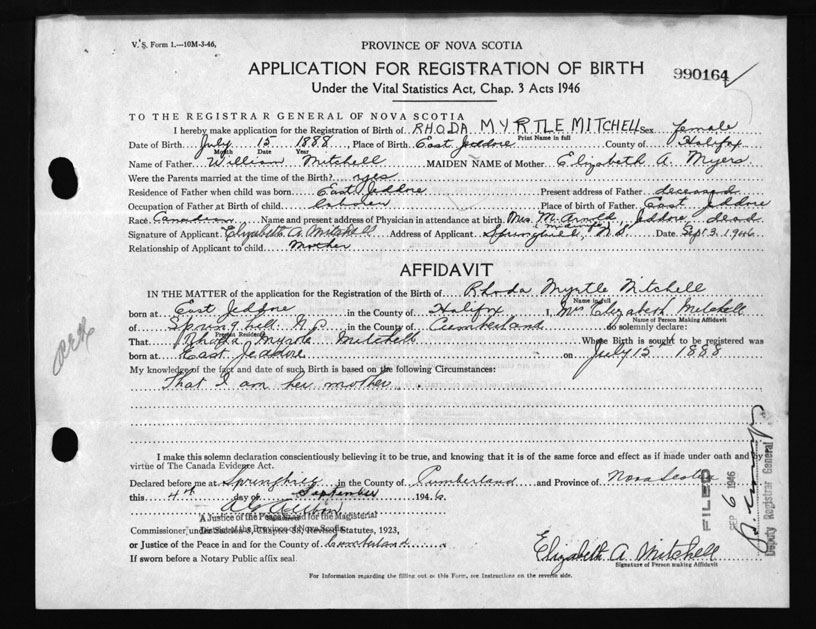 V. S. Form 1.—10M-3-46.
PROVINCE OF NOVA SCOTIA
APPLICATION FOR REGISTRATION OF BIRTH
990164
Under the Vital Statistics Act, Chap. 3 Acts 1946
TO THE REGISTRAR GENERAL OF NOVA SCOTIA
I hereby make application for the Registration of Birth of RHODA MYRTLE MITCHELL Sex female
Print Name in full
Date of Birth July 15 1888, Place of Birth East Jeddore County of Halifax
Month Date Year
Name of Father William Mitchell MAIDEN NAME of Mother Elizabeth A. Myers
Were the Parents married at the time of the Birth? yes
Residence of Father when child was born East Jeddore Present address of Father deceased
Occupation of Father at Birth of child Laborer Place of birth of Father East Jeddore
Race Canadian Name and present address of Physician in attendance at birth Mrs. M. Arnold, Jeddore dead
(midwife)
Signature of Applicant Elizabeth A. Mitchell Address of Applicant Springhill, N.S. Date Sept 3, 1946
Relationship of Applicant to child Mother
AFFIDAVIT
IN THE MATTER of the application for the Registration of the Birth of Rhoda Myrtle Mitchell
Name in full
born at East Jeddore in the County of Halifax I, Mrs Elizabeth Mitchell
Name of Person Making Affidavit
of Springhill N.S. in the County of Cumberland do solemnly declare:
Present Residence
That Rhoda Myrtle Mitchell Whose Birth is sought to be registered was
born at East Jeddore on July 15th 1888
My knowledge of the fact and date of such Birth is based on the following Circumstances:
That I am her mother.
I make this solemn declaration conscientiously believing it to be true, and knowing that it is of the same force and effect as if made under oath and by
virtue of The Canada Evidence Act.
Declared before me at Springhill in the County of Cumberland and Province of Nova Scotia
this 4th day of September 1946
A Justice of the Peace in and for the Magisterial
Commissioner under Section 8, Chapter 38, Revised Statutes, 1923,
or Justice of the Peace in and for the County of Cumberland
If sworn before a Notary Public affix seal.
Elizabeth A. Mitchell
Signature of Person making Affidavit
FILED
SEP 6 1946
Deputy Registrar General
For Information regarding the filling out of this Form, see Instructions on the reverse side.